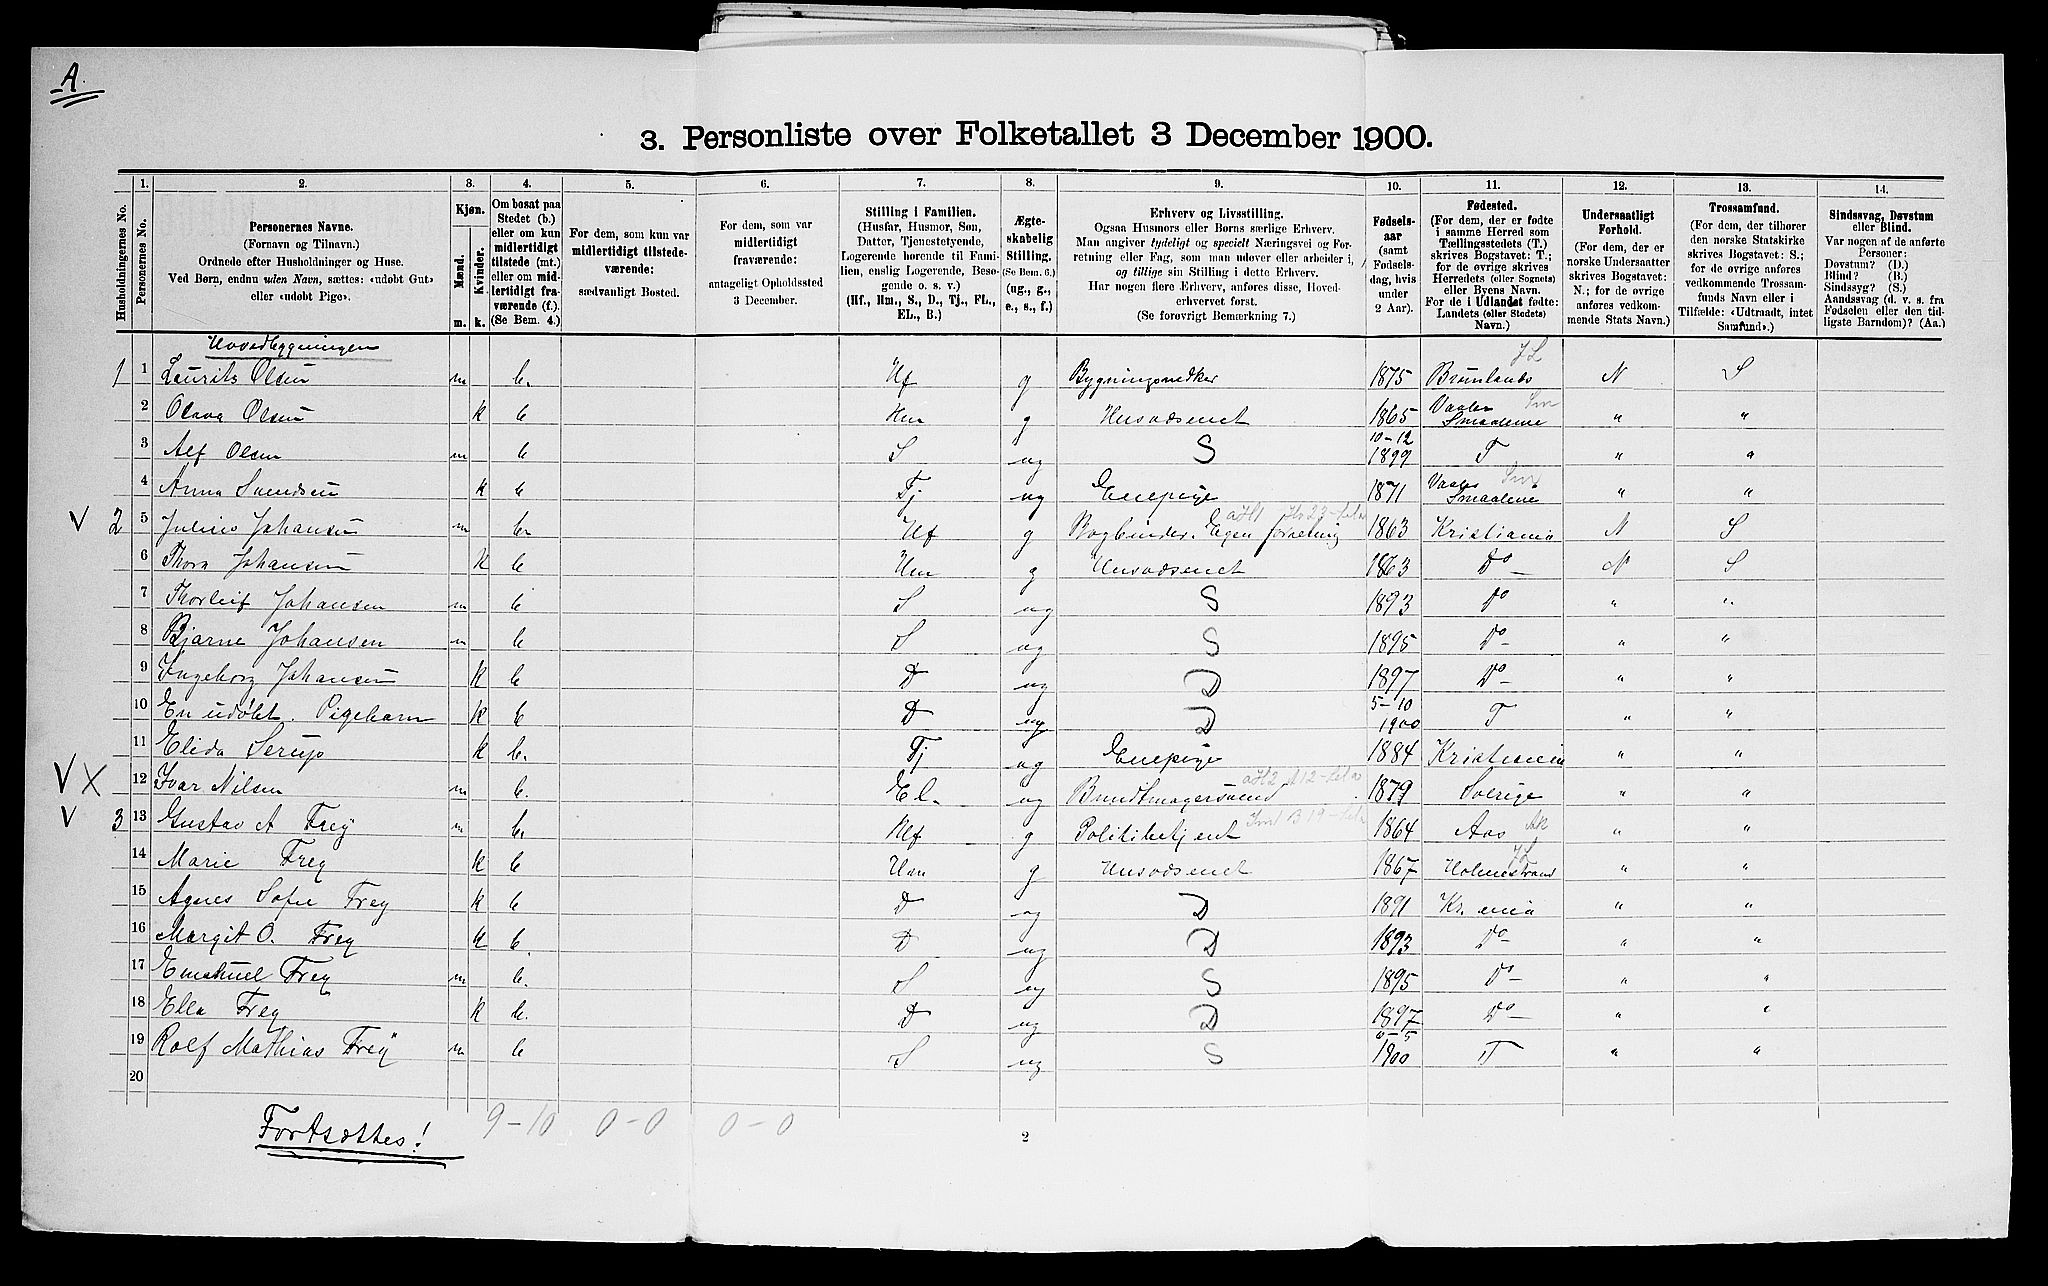 A.
3. Personliste over Folketallet 3 December 1900.
Husholdningernes No.
1.
Personernes No.
2.
Personernes Navne.
(Fornavn og Tilnavn.)
Ordnede efter Husholdninger og Huse.
Ved Børn, endnu uden Navn, sættes: «udobt Gut»
eller «udobt Pige».
3.
Kjøn.
Mænd.
Kvinder.
m. k.
4.
Om bosat paa
Stedet (b.)
eller om kun
midlertidigt
tilstede (mt.)
eller om mid-
lertidigt fra-
værende (f.)
(Se Bem. 4.)
5.
For dem, som kun var
midlertidigt tilstede-
værende:
sædvanligt Bosted.
6.
For dem, som var
midlertidigt
fraværende:
antageligt Opholdssted
3 December.
7.
Stilling i Familien.
(Husfar, Husmor, Søn,
Datter, Tjenestetyende,
Logerende hørende til Fami-
lien, enslig Logerende, Besø-
gende o. s. v.)
(Hf., Hm., S., D., Tj., FL.,
EL., B.)
8.
Ægte-
skabelig
Stilling.
(Se Bem. 6.)
(ug., g.,
e., s., f.)
9.
Erhverv og Livsstilling.
Ogsaa Husmors eller Børns særlige Erhverv.
Man angiver tydeligt og specielt Næringsvei og For-
retning eller Fag, som man udøver eller arbeider i,
og tillige sin Stilling i dette Erhverv.
Har nogen flere Erhverv, anføres disse, Hoved-
erhvervet først.
(Se forøvrigt Bemærkning 7.)
10.
Fødsels-
aar
(samt
Fødsels-
dag, hvis
under
2 Aar).
11.
Fødested.
(For dem, der er fødte
i samme Herred som
Tællingsstedets (T.)
skrives Bogstavet: T.;
for de øvrige skrives
Herredets (eller Sognets)
eller Byens Navn.
For de i Udlandet fødte:
Landets (eller Stedets)
Navn.)
12.
Undersaatligt
Forhold.
(For dem, der er
norske Undersaatter
skrives Bogstavet:
N.; for de øvrige
anføres vedkom-
mende Stats Navn.)
13.
Trossamfund.
(For dem, der tilhører
den norske Statskirke
skrives Bogstavet: S.;
for de øvrige anføres
vedkommende Trossam-
funds Navn eller i
Tilfælde: «Udtraadt, intet
Samfund».)
14.
Sindssvag, Døvstum
eller Blind.
Var nogen af de anførte
Personer:
Døvstum? (D.)
Blind? (B.)
Sindssyg? (S.)
Aandssvag (d. v. s. fra
Fødselen eller den tid-
ligste Barndom)? (Aa.)
Hovedbygningen
1 1 Laurits Olsen m b. Hf g Bygningssnedker 1875 Brunlanæs JL N S
2 Olava Olsen k b Hm g Husvæsenet 1865 Vaaler Smaalene Sm " "
3 Alf Olsen m b S ug S 10-12 1899 T " "
4 Anna Svendsen k b Tj ug Enepige 1871 Vaaler Smaalene Sm " "
V 2 5 Julius Johansen m b. Hf g Bogbinder. Egen forretning 1863 Kristiania N S
6 Thora Johansen k b Hm g Husvæsenet 1863 Do N S
7 Thorleif Johansen m b S ug S 1893 Do " "
8 Bjarne Johansen m b S ug S 1895 Do " "
9 Ingeborg Johansen k b D ug D 1897 Do " "
10 En udøbt. Pigebarn k b D ug D 5-10 1900 T " "
11 Elida Serup k b. Tj ug Enepige 1884 Kristiania " "
V X 12 Ivar Nilsen m b. El. ug Bundtmagersvend 1879 Sverige " "
V 3 13 Gustav A Frey m b. Hf g Politibetjent 1864 Aas Ak " "
14 Marie Frey k b Hm g Husvæsenet 1867 Holmestrand JL " "
15 Agnes Sofie Frey k b D ug D 1891 Kr. ania " "
16 Margit O. Frey k b. D ug D 1893 Do " "
17 Emanuel Frey m b. S ug S 1895 Do " "
18 Ella Frey k b. D ug D 1897 Do " "
19 Rolf Mathias Frey m b S ug S 1900 T " "
20
Fortsættes! 9-10 0-0 0-0
2